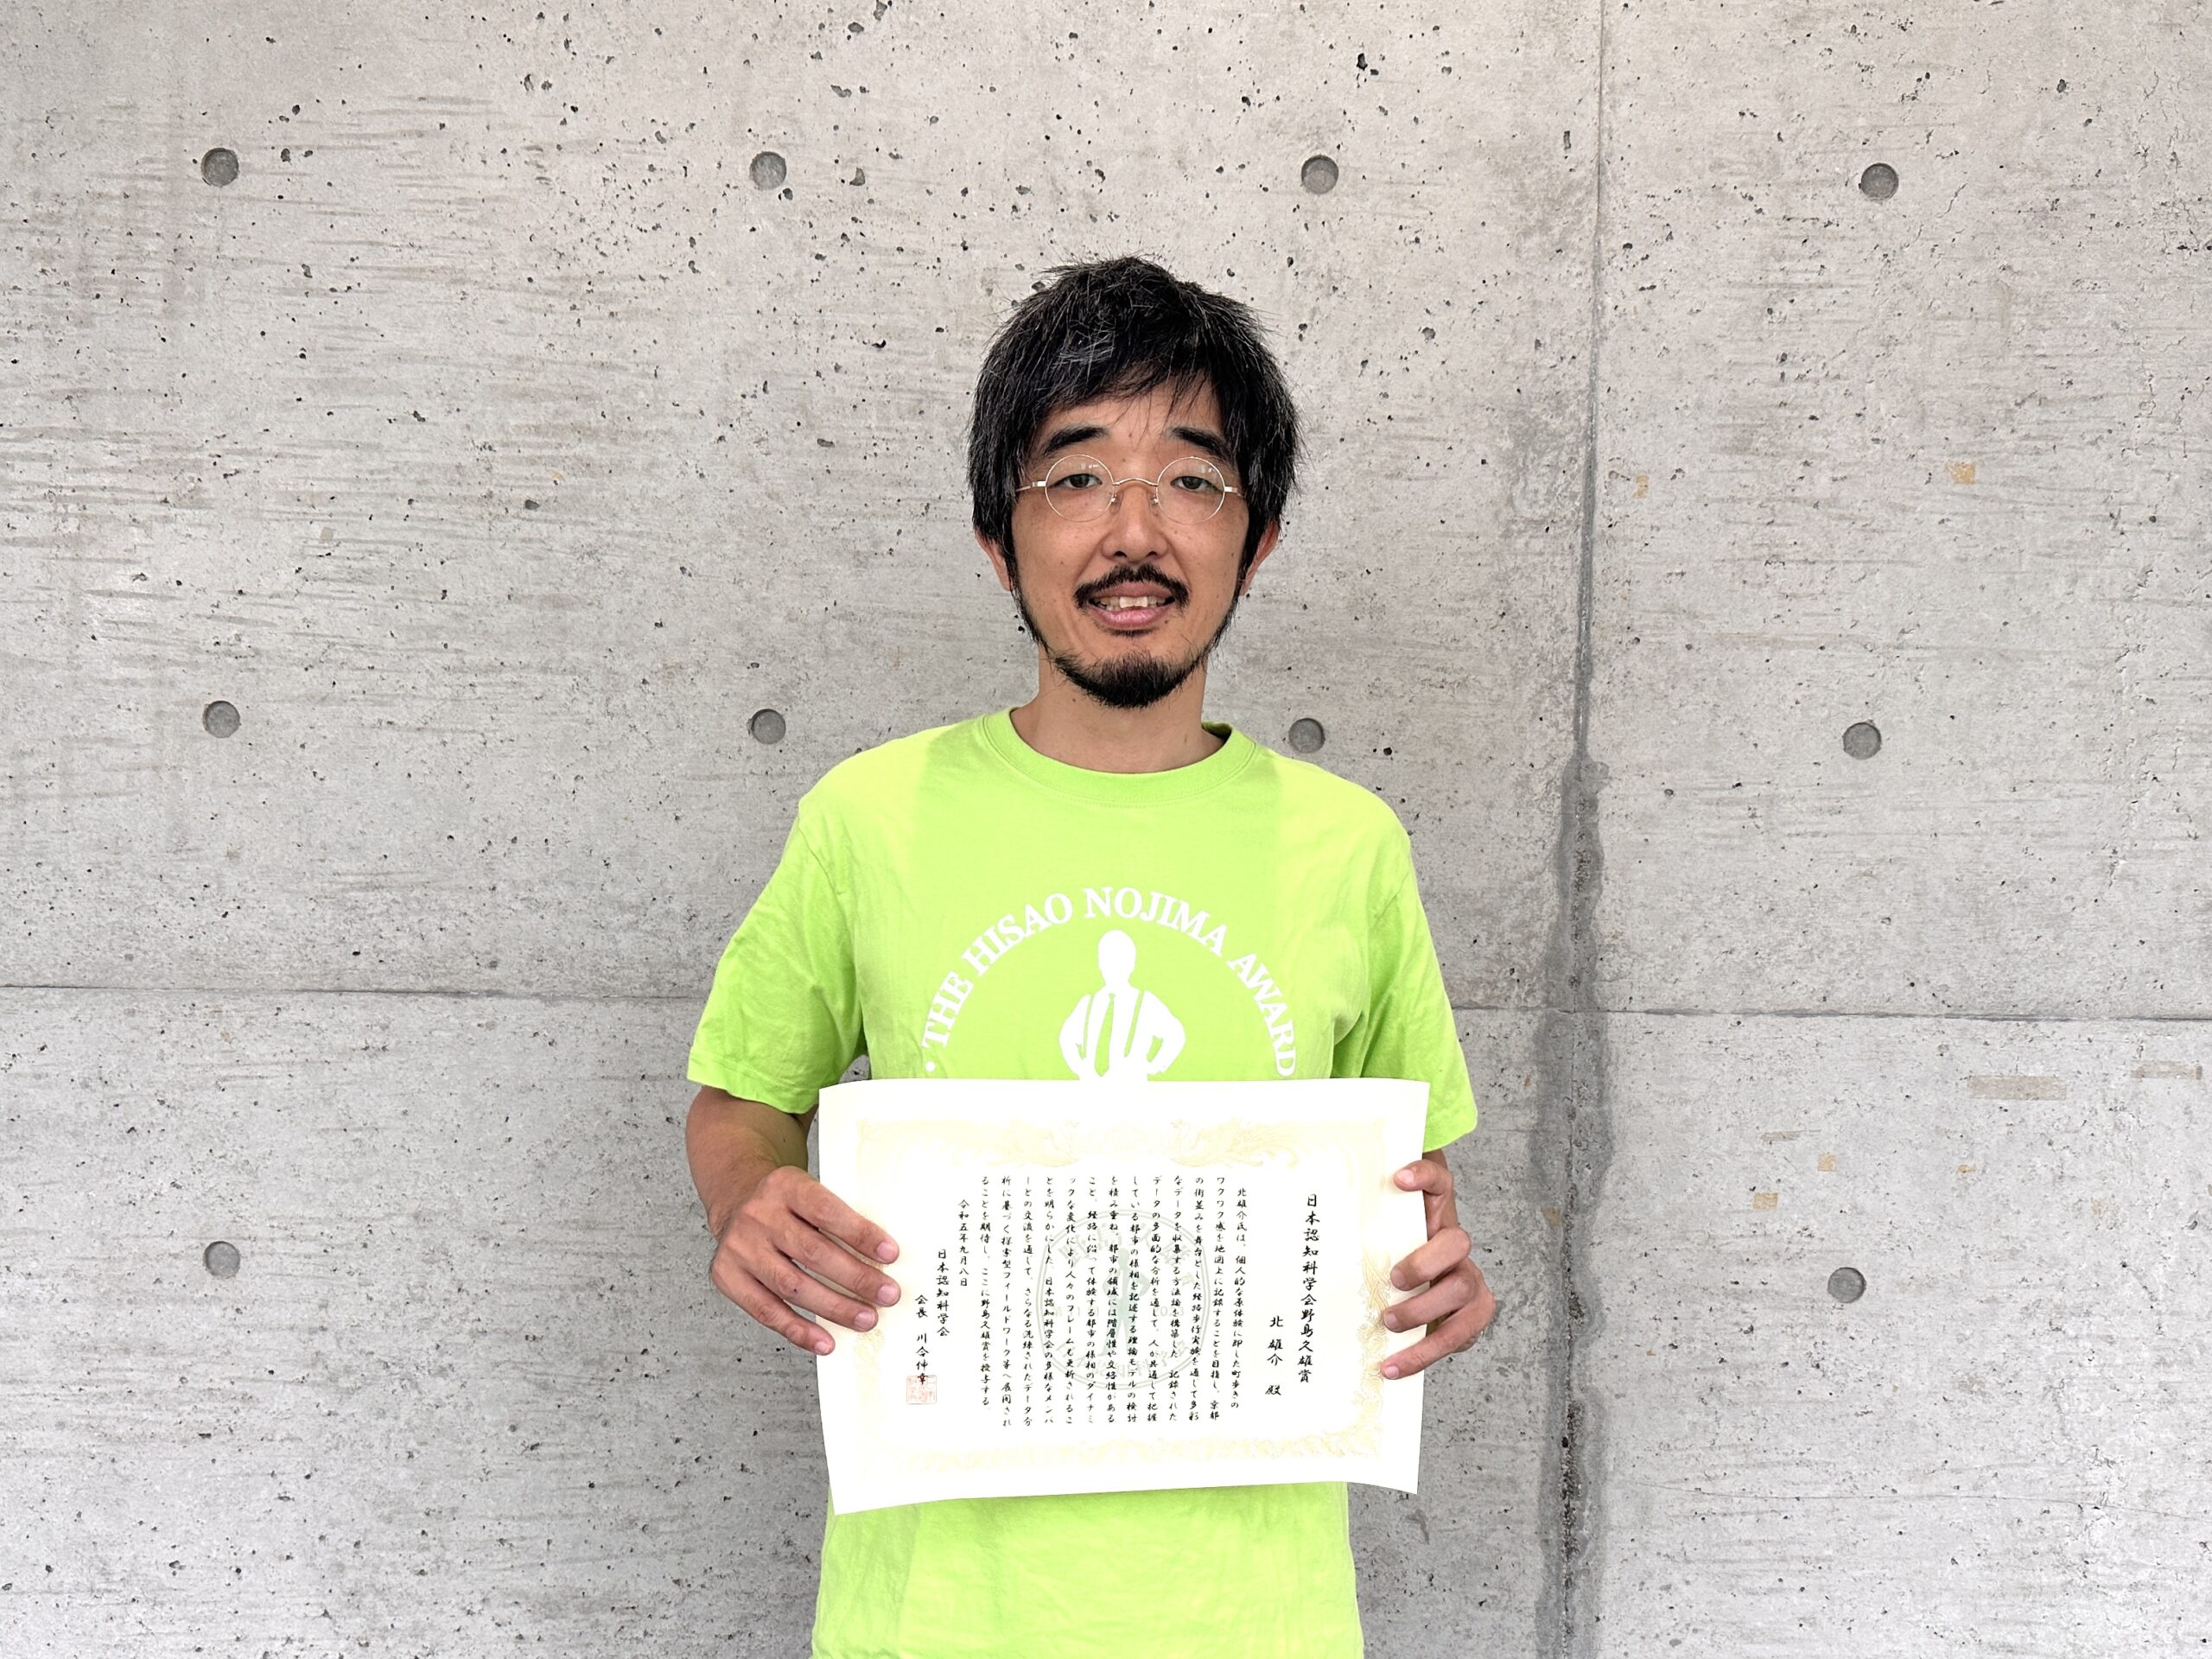 • THE HISAO NOJIMA AWARD
日本認知科学会野島久雄賞
北 雄介 殿
北雄介氏は、個人的な原体験に即した町歩きの
ワクワク感を地図上に記録することを目指し、京都
の街並みを舞台とした経路歩行実験を通して多彩
なデータを収集する方法論を構築した。記録された
データの多面的な分析を通して、人が共通して把握
している都市の様相を記述する理論モデルの検討
を積み重ね、都市の領域には階層性や交絡性がある
こと、経路に沿って体験する都市の様相のダイナミ
ックな変化により人々のフレームも更新されるこ
とを明らかにした。日本認知科学会の多様なメンバ
ーとの交流を通して、さらなる洗練されたデータ分
析に基づく探索型フィールドワーク等へ展開され
ることを期待し、ここに野島久雄賞を授与する
令和五年九月八日
日本認知科学会
会長 川合伸幸